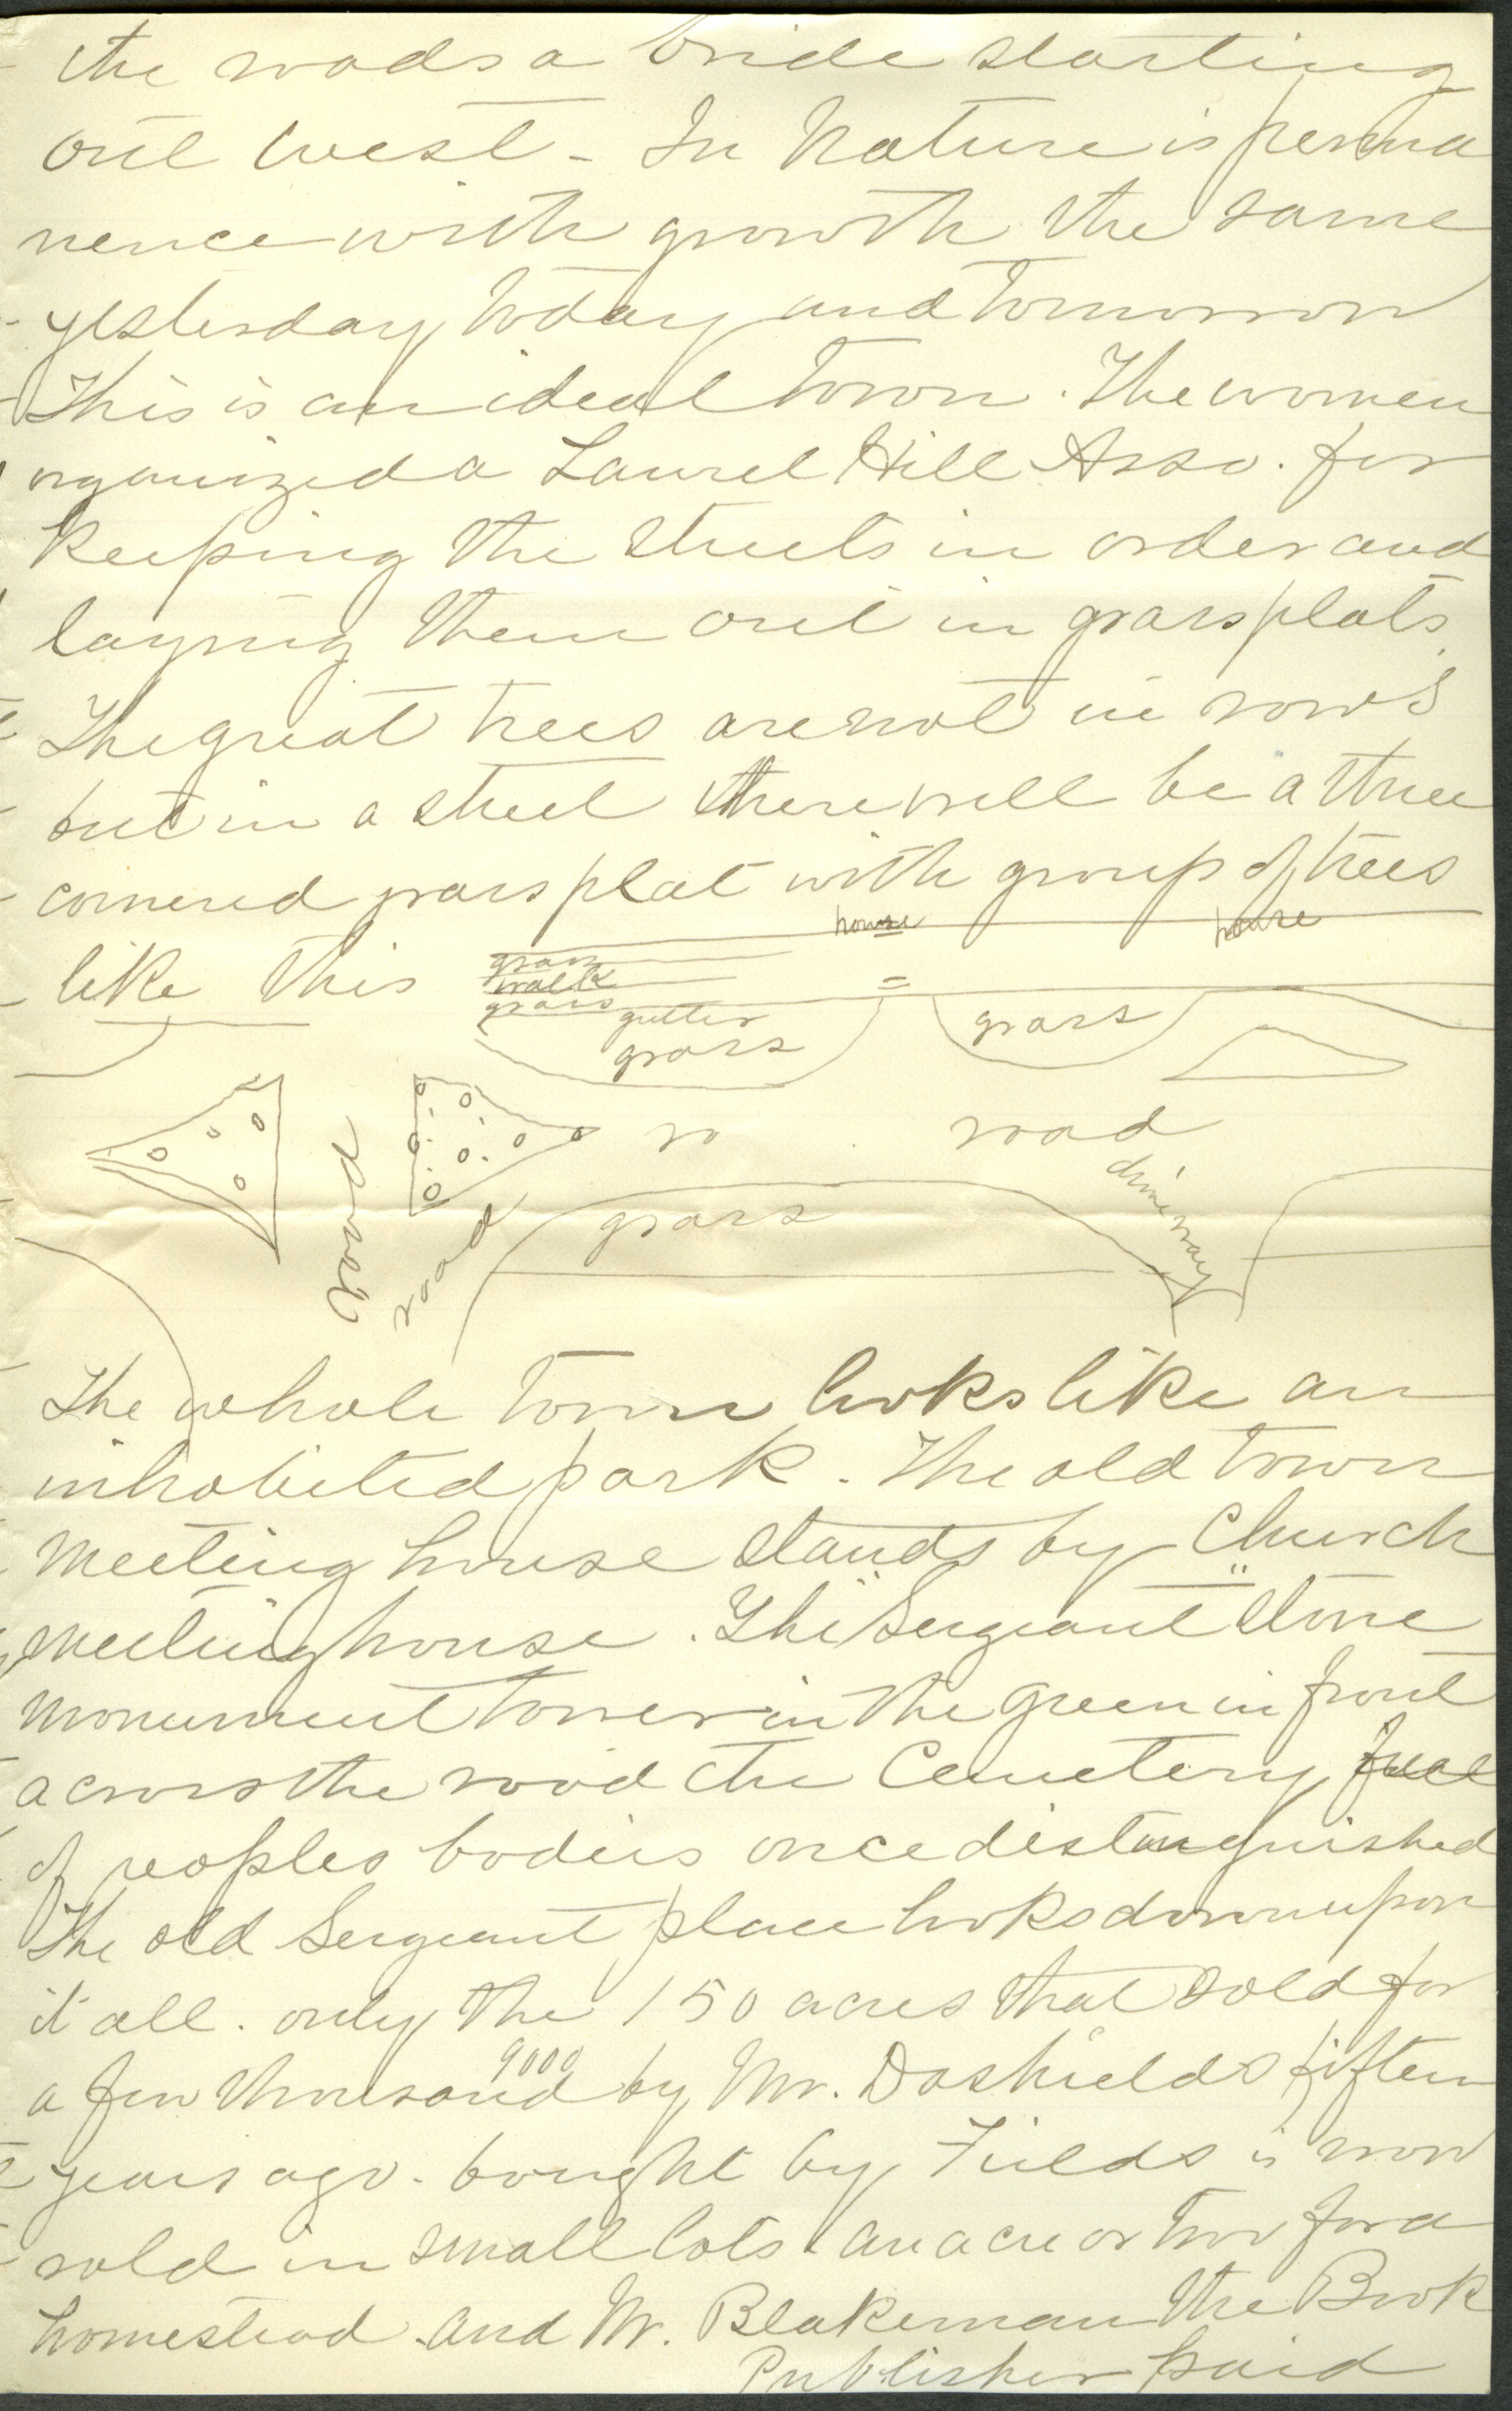 the roads a bride starting
out west - In Nature is perma
nence with growth the same
yesterday today and tomorrow
This is an ideal town. The women
organized a Laurel Hill Asso. for
keeping the streets in order and
laying them out in grass plats.
The great trees are not in rows
but in a street there will be a three
cornered grass plat with group of trees
like this
house house
grass
walk
grass
gutter
grass
grass
road
road
ro road
driveway
grass
The whole town looks like an
inhabited park. The old town
meeting house stands by Church
meeting house. The "Sergeant" stone
monument tower in the green in front
across the road the Cemetery full
of peoples bodies once distinguished
The old Sergeant place looks down upon
it all. only the 150 acres that sold for
9000
a few thousand by Mr. Dashields fifteen
years ago. bought by Fields is now
sold in small lots an acre or two for a
homestead. And Mr. Blakeman the Book
Publisher paid